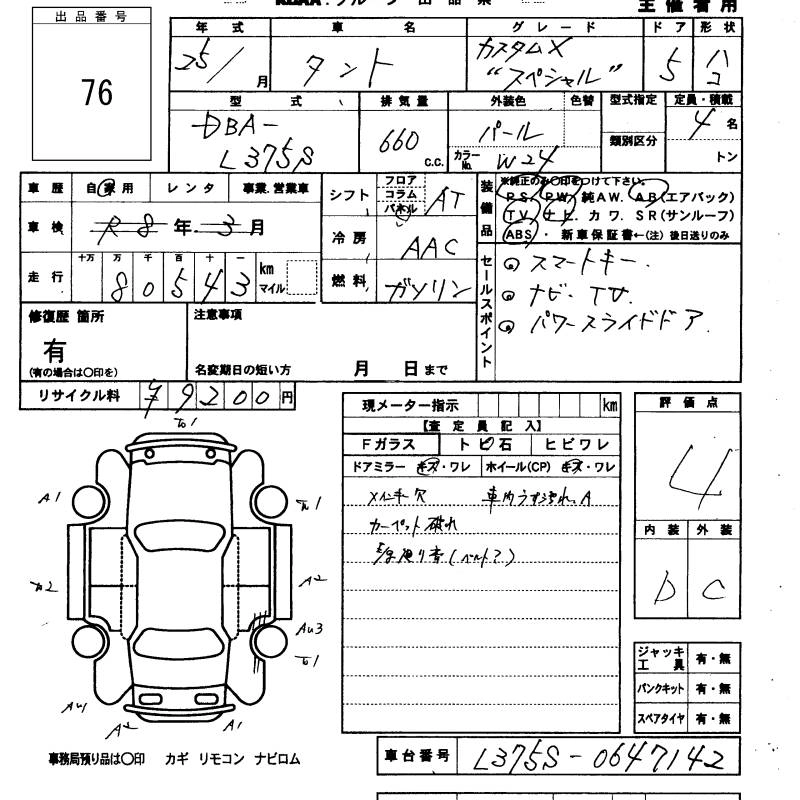 主催者用
出品番号
76
年式 車名 グレード ドア 形状
25/ 月 タント カスタムX “スペシャル” 5 ハコ
型式 排気量 外装色 色替 型式指定 定員・積載
DBA-L375S 660 c.c. パール カラーNo. W24 類別区分 4名 トン
車歴 自家用 レンタ 事業・営業車
車検 R8年3月
走行 十万 万 千 百 十 一
80543 km マイル
シフト フロア コラム パネル AT
冷房 AAC
燃料 ガソリン
装備品 ※純正のみ○印をつけて下さい。
PS. PW. 純AW. AB(エアバック)
TV. ナビ. カワ. SR(サンルーフ)
ABS ・ 新車保証書←(注) 後日送りのみ
セールスポイント
スマートキー.
ナビ. TV.
パワースライドドア.
修復歴 箇所
有
(有の場合は○印を)
注意事項
名変期日の短い方 月 日まで
リサイクル料 ¥9200円
現メーター指示 km
【査定員記入】
Fガラス トビ石 ヒビワレ
ドアミラー キズ・ワレ ホイール(CP) キズ・ワレ
メインキー欠 車内うす汚れ、A
カーペット破れ
評価点
4
内装 外装
D C
A1
A2
AU3
AU1
A1
ジャッキ工具 有・無
パンクキット 有・無
スペアタイヤ 有・無
事務局預り品は○印 カギ リモコン ナビロム
車台番号 L375S-0647142